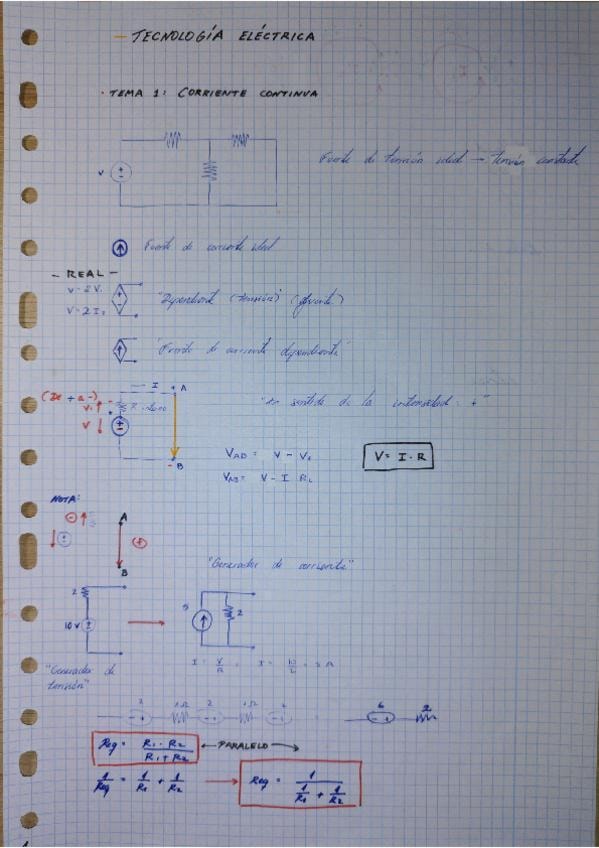 - TECNOLOGÍA ELÉCTRICA
· TEMA 1: CORRIENTE CONTINUA
V
Fuente de tensión ideal → tensión constante
Fuente de corriente ideal
- REAL -
V=2V.
V=2I.
"Dependiente (tensión) (fuente)
"Fuente de corriente dependiente"
I + A
(De + a -)
V. ↑ R interno
V ↓
- B
"En sentido de la intensidad: +"
VAB = V - V.
VAB = V - I R.
V = I · R
NOTA:
A
B
"Generador de corriente"
2
10V
5
2
I = V/R ; I = 10/2 = 5 A
"Generador de tensión"
2 1Ω 2 1Ω 2
6 2
Req = R1 · R2 / R1 + R2 ← PARALELO →
1/Req = 1/R1 + 1/R2 → Req = 1 / 1/R1 + 1/R2